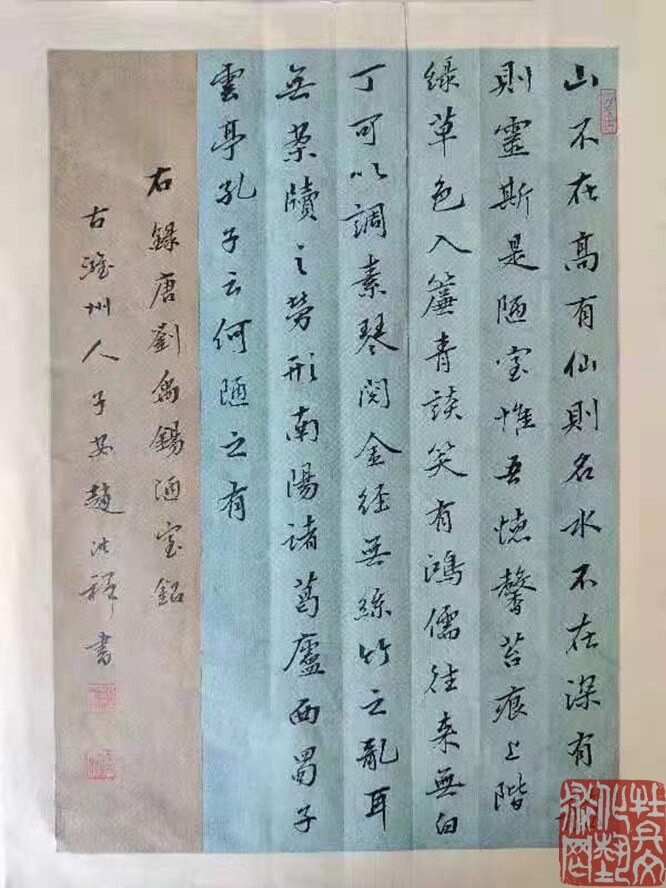 山不在高有仙則名水不在深有
則靈斯是陋室惟吾德馨苔痕上階
綠草色入簾青談笑有鴻儒往來無白
丁可以調素琴閱金経無絲竹之亂耳
無案牘之勞形南陽諸葛廬西蜀子
雲亭孔子云何陋之有
右録唐劉禹錫陋室銘
古濰州人子安趙洪
書